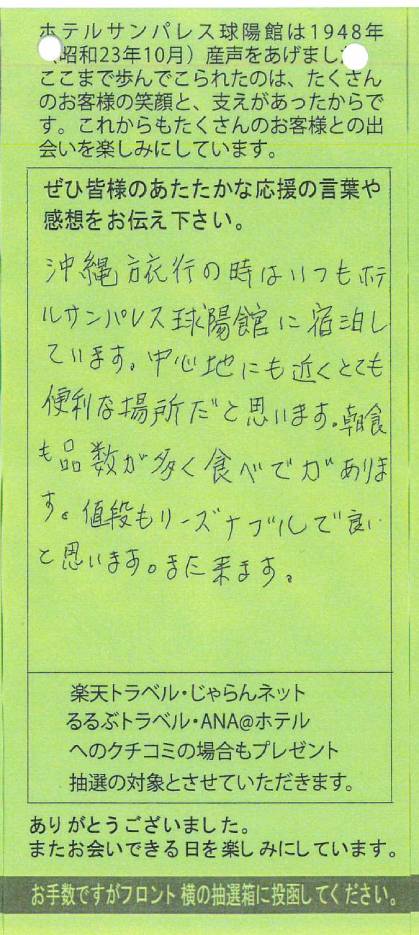 ホテルサンパレス球陽館は1948年
（昭和23年10月）産声をあげまし
ここまで歩んでこられたのは、たくさん
のお客様の笑顔と、支えがあったからで
す。これからもたくさんのお客様との出
会いを楽しみにしています。
ぜひ皆様のあたたかな応援の言葉や
感想をお伝え下さい。
沖縄旅行の時はいつもホテ
ルサンパレス球陽館に宿泊し
ています。中心地にも近くとても
便利な場所だと思います。朝食
も品数が多く食べでがありま
す。値段もリーズナブルで良い
と思います。また来ます。
楽天トラベル・じゃらんネット
るるぶトラベル・ANA@ホテル
へのクチコミの場合もプレゼント
抽選の対象とさせていただきます。
ありがとうございました。
またお会いできる日を楽しみにしています。
お手数ですがフロント横の抽選箱に投函してください。